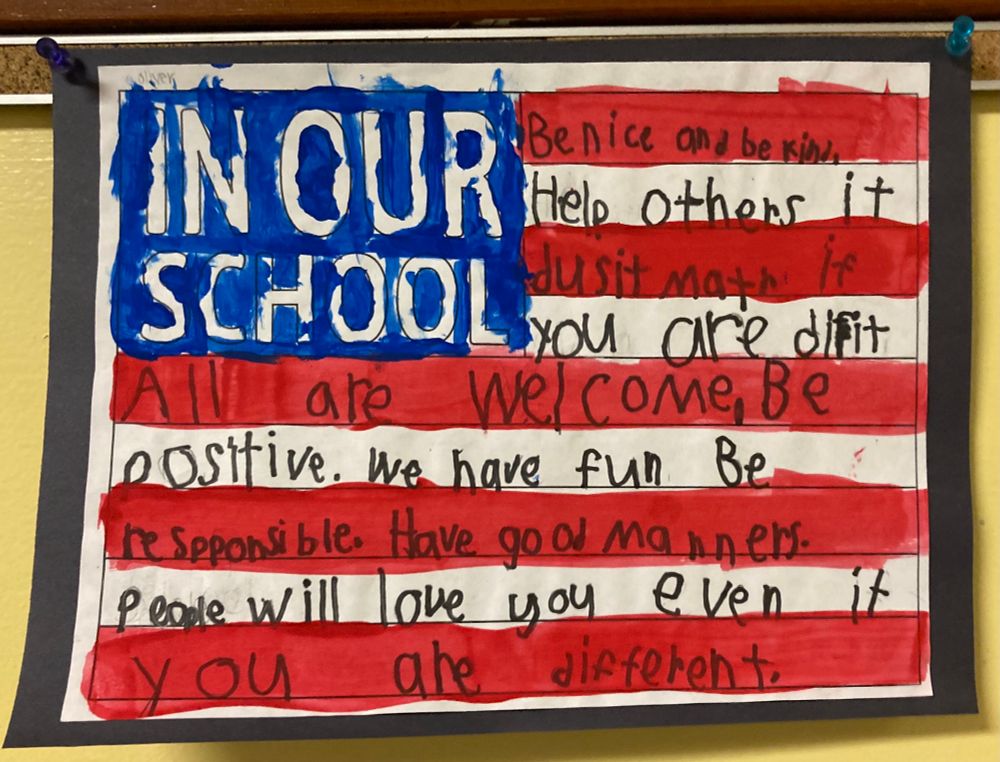 sliver
IN OUR
SCHOOL
Be nice and be kind.
Help others it
dusit matr if
you are difit
All are welcome, Be
positive. we have fun Be
respponsible. Have good manners.
people will love you even if
you are different.